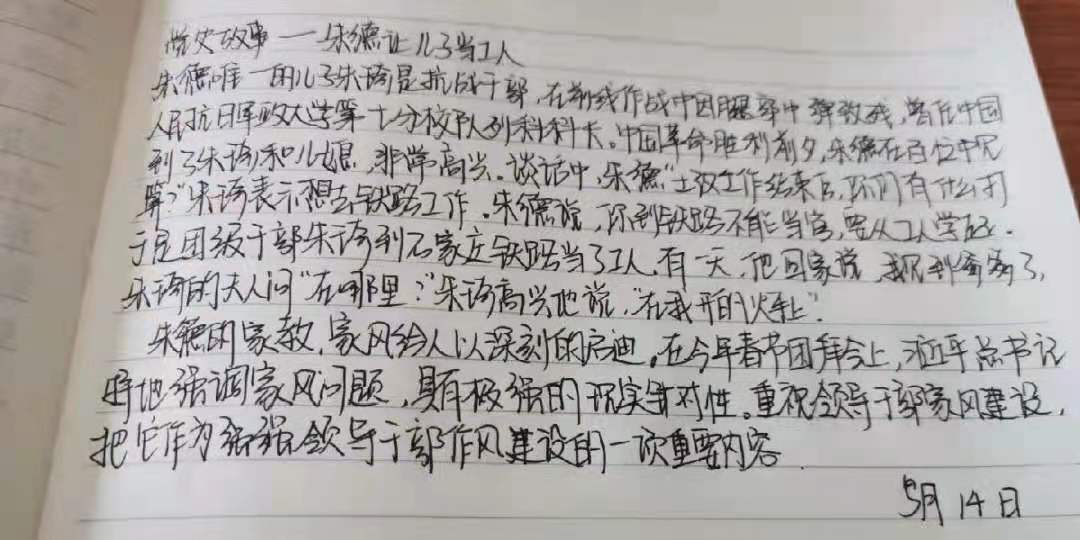 党史故事——朱德让儿子当工人
朱德唯一的儿子朱琦是抗战干部,在前线作战中因腿部中弹致残,曾任中国
人民抗日军政大学第十分校队列科科长。中国革命胜利前夕,朱德在百忙中见
到了朱琦和儿媳,非常高兴。谈话中,朱德"土改工作结束后,你们有什么打
算?"朱琦表示想去铁路工作。朱德说,你到铁路不能当官,要从工人学起。
于是团级干部朱琦到石家庄铁路当了工人。有一天,他回家说,我见到爹爹了,
朱琦的夫人问"在哪里?"朱琦高兴地说,"在我开的火车上".
朱德的家教,家风给人以深刻的启迪。在今年春节团拜会上,习近平总书记
特地强调家风问题,具有极强的现实针对性。重视领导干部家风建设,
把它作为领导干部作风建设的一项重要内容
5月14日